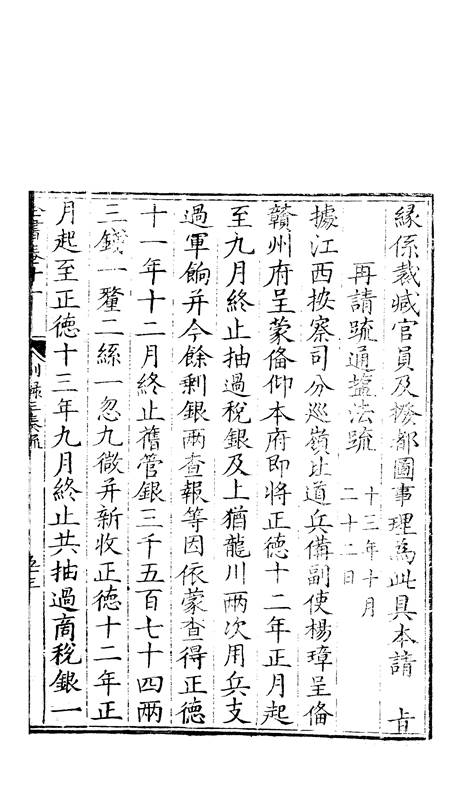 縁係裁減官員及撥都圖事理為此具本請　旨
再請疏通塩法疏
十三年十月
二十二日
據江西按察司分巡嶺北道兵備副使楊璋呈偹
贛州府呈蒙偹仰本府即將正德十二年正月起
至九月終止抽過稅銀及上猶龍川兩次用兵支
過軍餉并今餘剩銀兩查報等因依蒙查得正德
十一年十二月終止舊管銀三千五百七十四兩
三錢一釐二絲一忽九微并新收正德十二年正
月起至正德十三年九月終止共抽過商稅銀一
全書卷十一
別録三奏疏